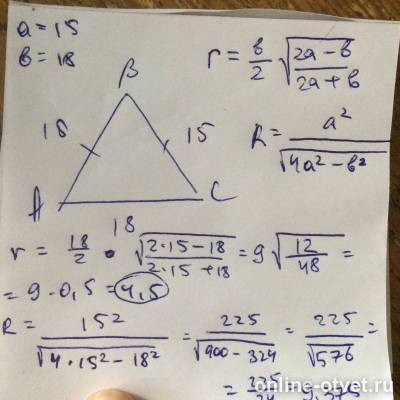 a = 15
в = 18
r = в/2 √(2a - в)/(2a + в)
B
18
15
R = a²/√(4a² - в²)
A
C
18
r = 18/2 · √(2·15 - 18)/(2·15 + 18) = 9 √12/48 =
= 9 · 0,5 = 4,5
R = 15²/√(4·15² - 18²) = 225/√(900 - 324) = 225/√576 =
= 225/24 9,375
online-otvet.ru